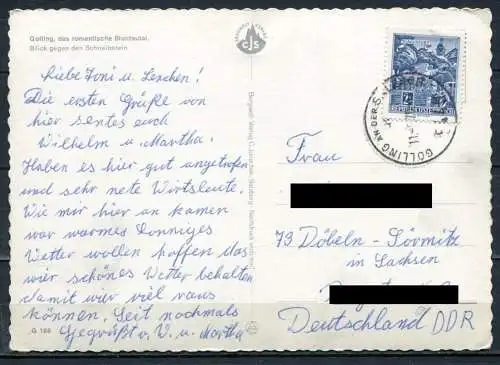 Golling, das romantische Bluntautal.
Blick gegen den Schneibstein
CJS
Liebe Toni u. Lenchen!
Die ersten Grüße von
hier sentes euch
Wilhelm u. Martha.
Haben es hier gut angetrofen
und sehr nete Wirtsleute.
Wie mir hier an kamen
war warmes sonniges
Wetter wollen hoffen das
wier schönes Wetter behalten
damit wier viel raus
können. Seit nochmals
Gegrüßt v. W. u. Martha
G 186
REPUBLIK ÖSTERREICH
GOLLING AN DER
Frau
73 Döbeln-Sörmitz
in Sachsen
Deutschland DDR